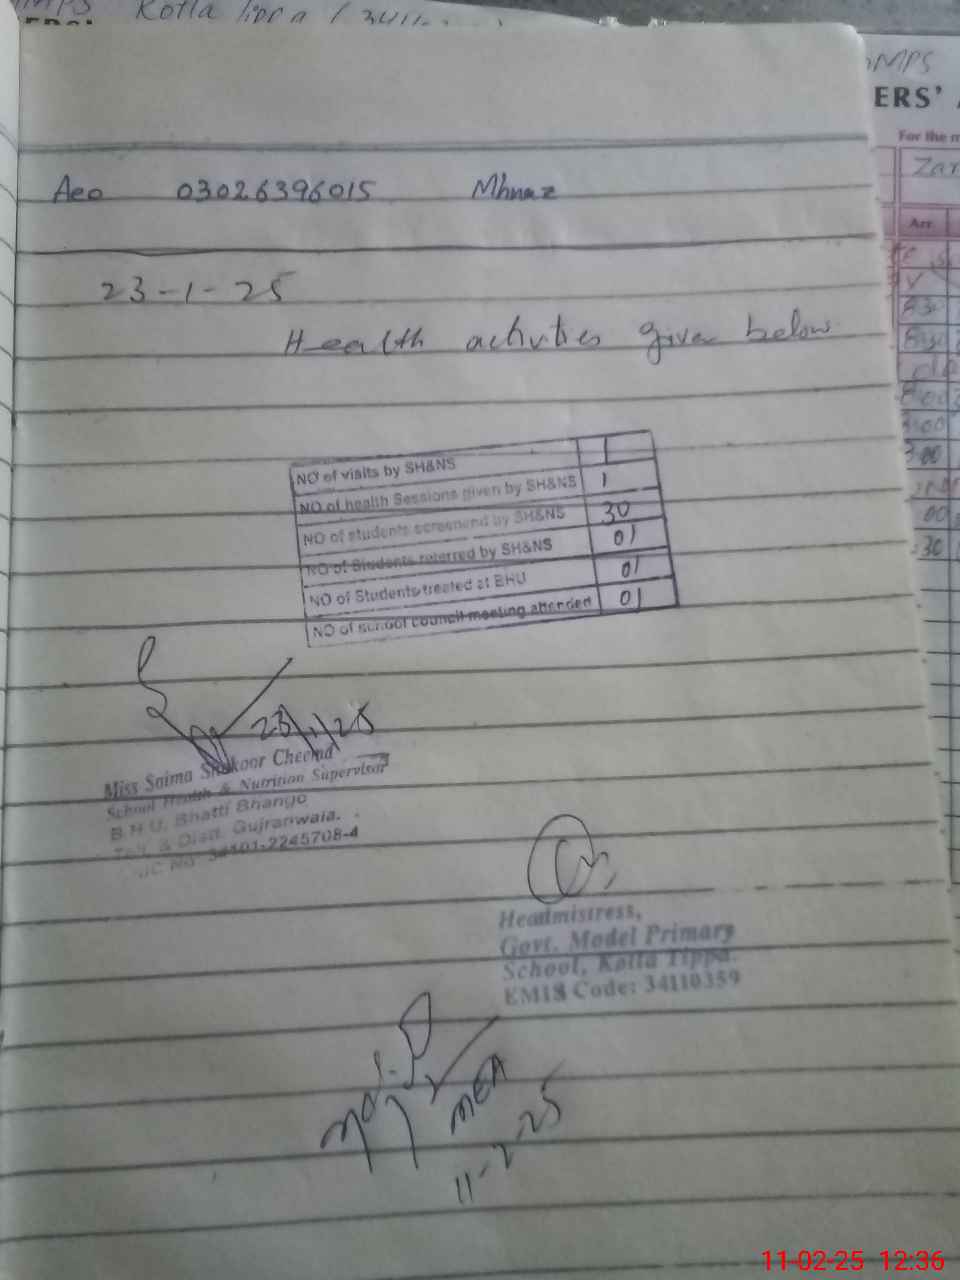 Kotla Tippa
MPS
ERS'
For the m
Zar
Arr
Aeo 03026396015 Mhnaz
23-1-25
Health activties given below
NO of visits by SH&NS 1
NO of health Sessions given by SH&NS 1
NO of students screenend by SH&NS 30
NO of Students referred by SH&NS 01
NO of Students treated at BHU 01
NO of school council meeting attended 01
23/1/25
Miss Saima Shakoor Cheema
School Health & Nutrition Supervisor
B.H.U. Bhatti Bhango
Teh. & Distt. Gujranwala.
34101-2245708-4
Headmistress,
Govt. Model Primary
School, Kotla Tippa.
EMIS Code: 34110359
MEA
11-2-25
11-02-25 12:36